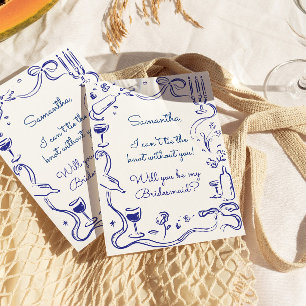 Samantha,
I can't tie the
knot without you!
Will you be my
Bridesmaid?
Samantha,
I can't tie the
knot without you!
Will you be my
Bridesmaid?